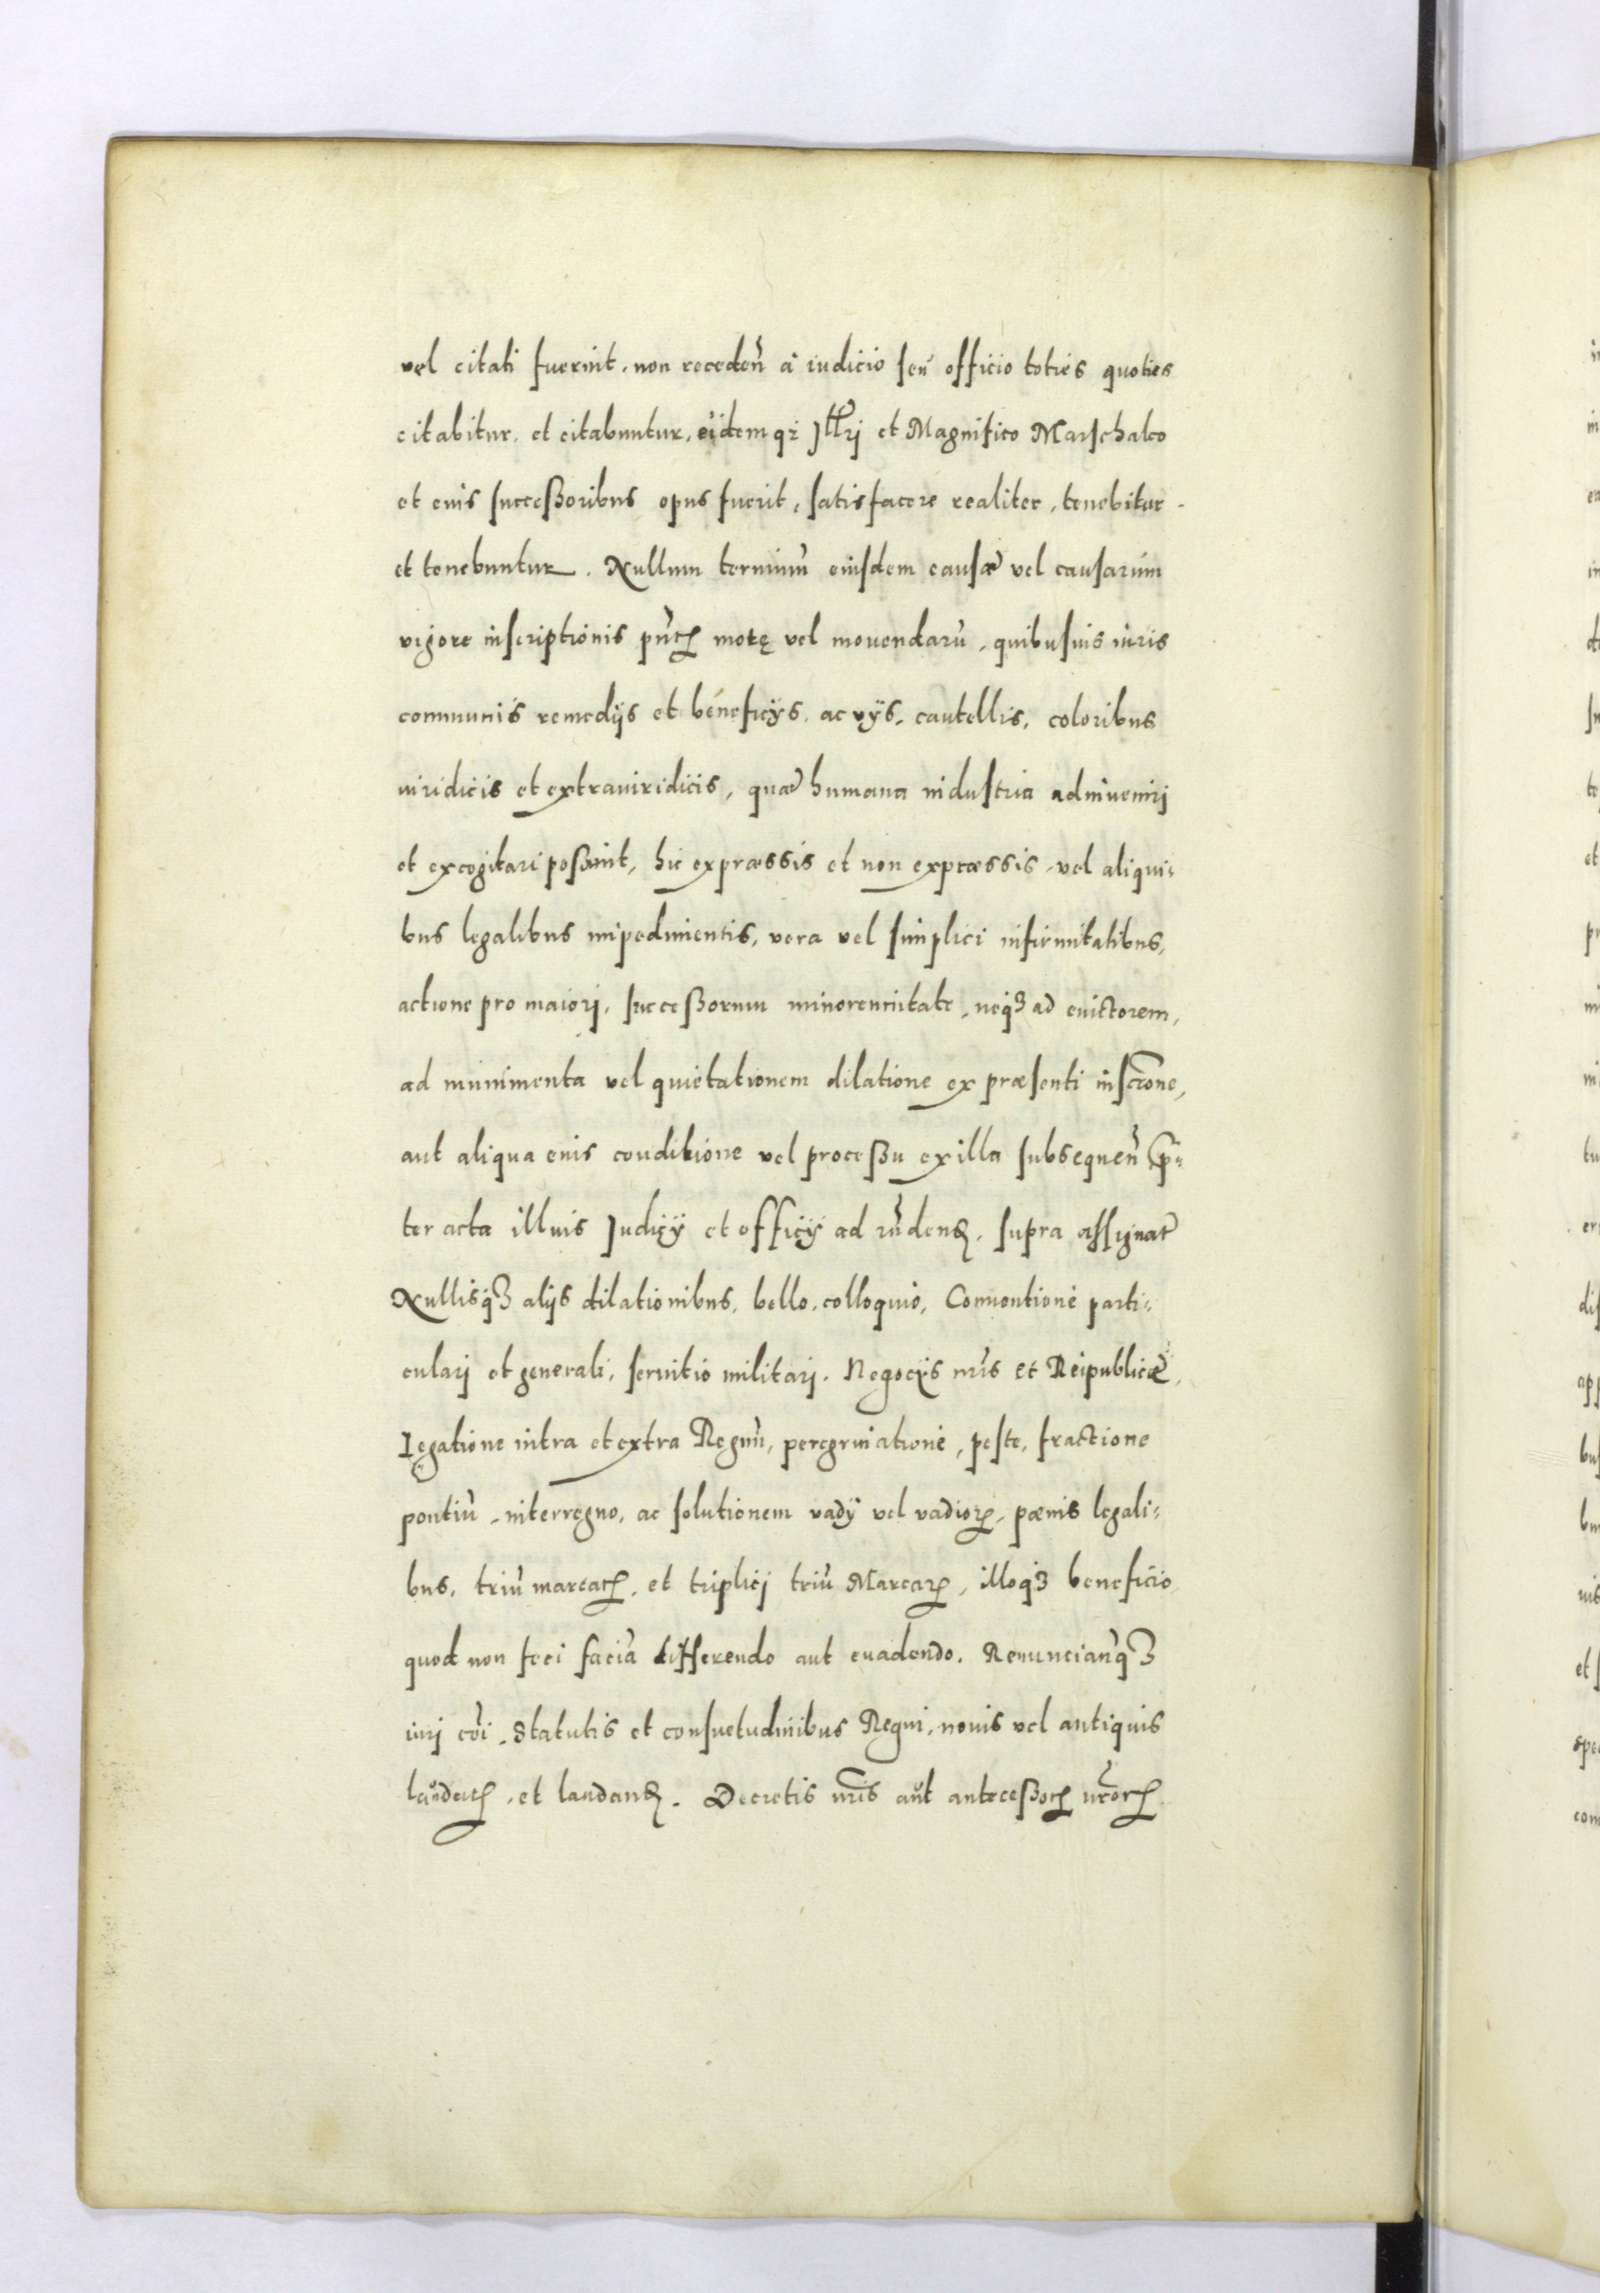 vel citati fuerint, non recedeñ a iudicio seu officio toties quoties
citabitur, et citabuntur, eidemq; Jllrj et Magnifico Marschalco
et eius successoribus opus fuerit, satisfacere realiter, tenebitur
et tenebuntur. Nullum terminũ eiusdem causæ vel causarum
vigore inscriptionis pñtꝫ motę vel mouendarũ, quibusuis iuris
communis remedijs et beneficijs, ac vijs, cautellis, coloribus
iuridicis et extraiuridicis, quæ humana industria adinuenirj
et excogitari possunt, hic expræssis et non expræssis, vel aliqui=
bus legalibus impedimentis, vera vel simplici infirmitatibus,
actione pro maiorj, successorum minorennitate, neqꝫ ad euictorem,
ad munimenta vel quietationem dilatione ex præsenti inscrõne,
aut aliqua eius conditione vel processu ex illa subsequeñ p=
ter acta illius Judicij et officij ad rñdenꝫ, supra assignat
Nullisqꝫ alijs dilationibus, bello, colloquio, Conuentione parti=
cularj et generali, seruitio militarj, Negocijs nr̃is et Reipublicæ,
Legatione intra et extra Regnũ, peregrinatione, peste, fractione
pontiũ, interregno, ac solutionem vadij vel vadioꝝ, pænis legali=
bus, triũ marcaꝝ, et triplicj triũ Marcaꝝ, illoqꝫ beneficio
quod non feci faciã differendo aut euadendo. Renuncianqꝫ
iurj cõi, Statutis et consuetudinibus Regni, nouis vel antiquis
laudatꝫ, et laudanꝫ. Decretis nr̃is aut antecessoꝝ nr̃oꝝ